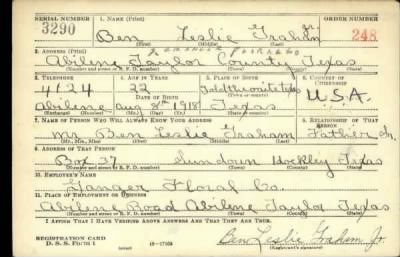 SERIAL NUMBER 1. NAME (Print) ORDER NUMBER
3290 Ben Leslie Graham Jr. 248
(First) (Middle) (Last)
2. ADDRESS (Print)
Abilene Taylor County Texas
(Number and street or R. F. D. number) (Town) (County) (State)
3. TELEPHONE 4. AGE IN YEARS 5. PLACE OF BIRTH 6. COUNTRY OF CITIZENSHIP
4124 22
DATE OF BIRTH (Town or county) U.S.A.
Abilene Aug 8th 1918 Texas
(Exchange) (Number) (Mo.) (Day) (Yr.) (State or country)
7. NAME OF PERSON WHO WILL ALWAYS KNOW YOUR ADDRESS 8. RELATIONSHIP OF THAT PERSON
Mr Ben Leslie Graham Father
(Mr., Mrs., Miss) (First) (Middle) (Last)
9. ADDRESS OF THAT PERSON
Box 37 Sundown Hockley Texas
(Number and street or R. F. D. number) (Town) (County) (State)
10. EMPLOYER'S NAME
Floral Co.
11. PLACE OF EMPLOYMENT OR BUSINESS
Abilene Road Abilene Taylor Texas
(Number and street or R. F. D. number) (Town) (County) (State)
I AFFIRM THAT I HAVE VERIFIED ABOVE ANSWERS AND THAT THEY ARE TRUE.
REGISTRATION CARD
D. S. S. Form 1 Ben Leslie Graham Jr.
(Registrant's signature)